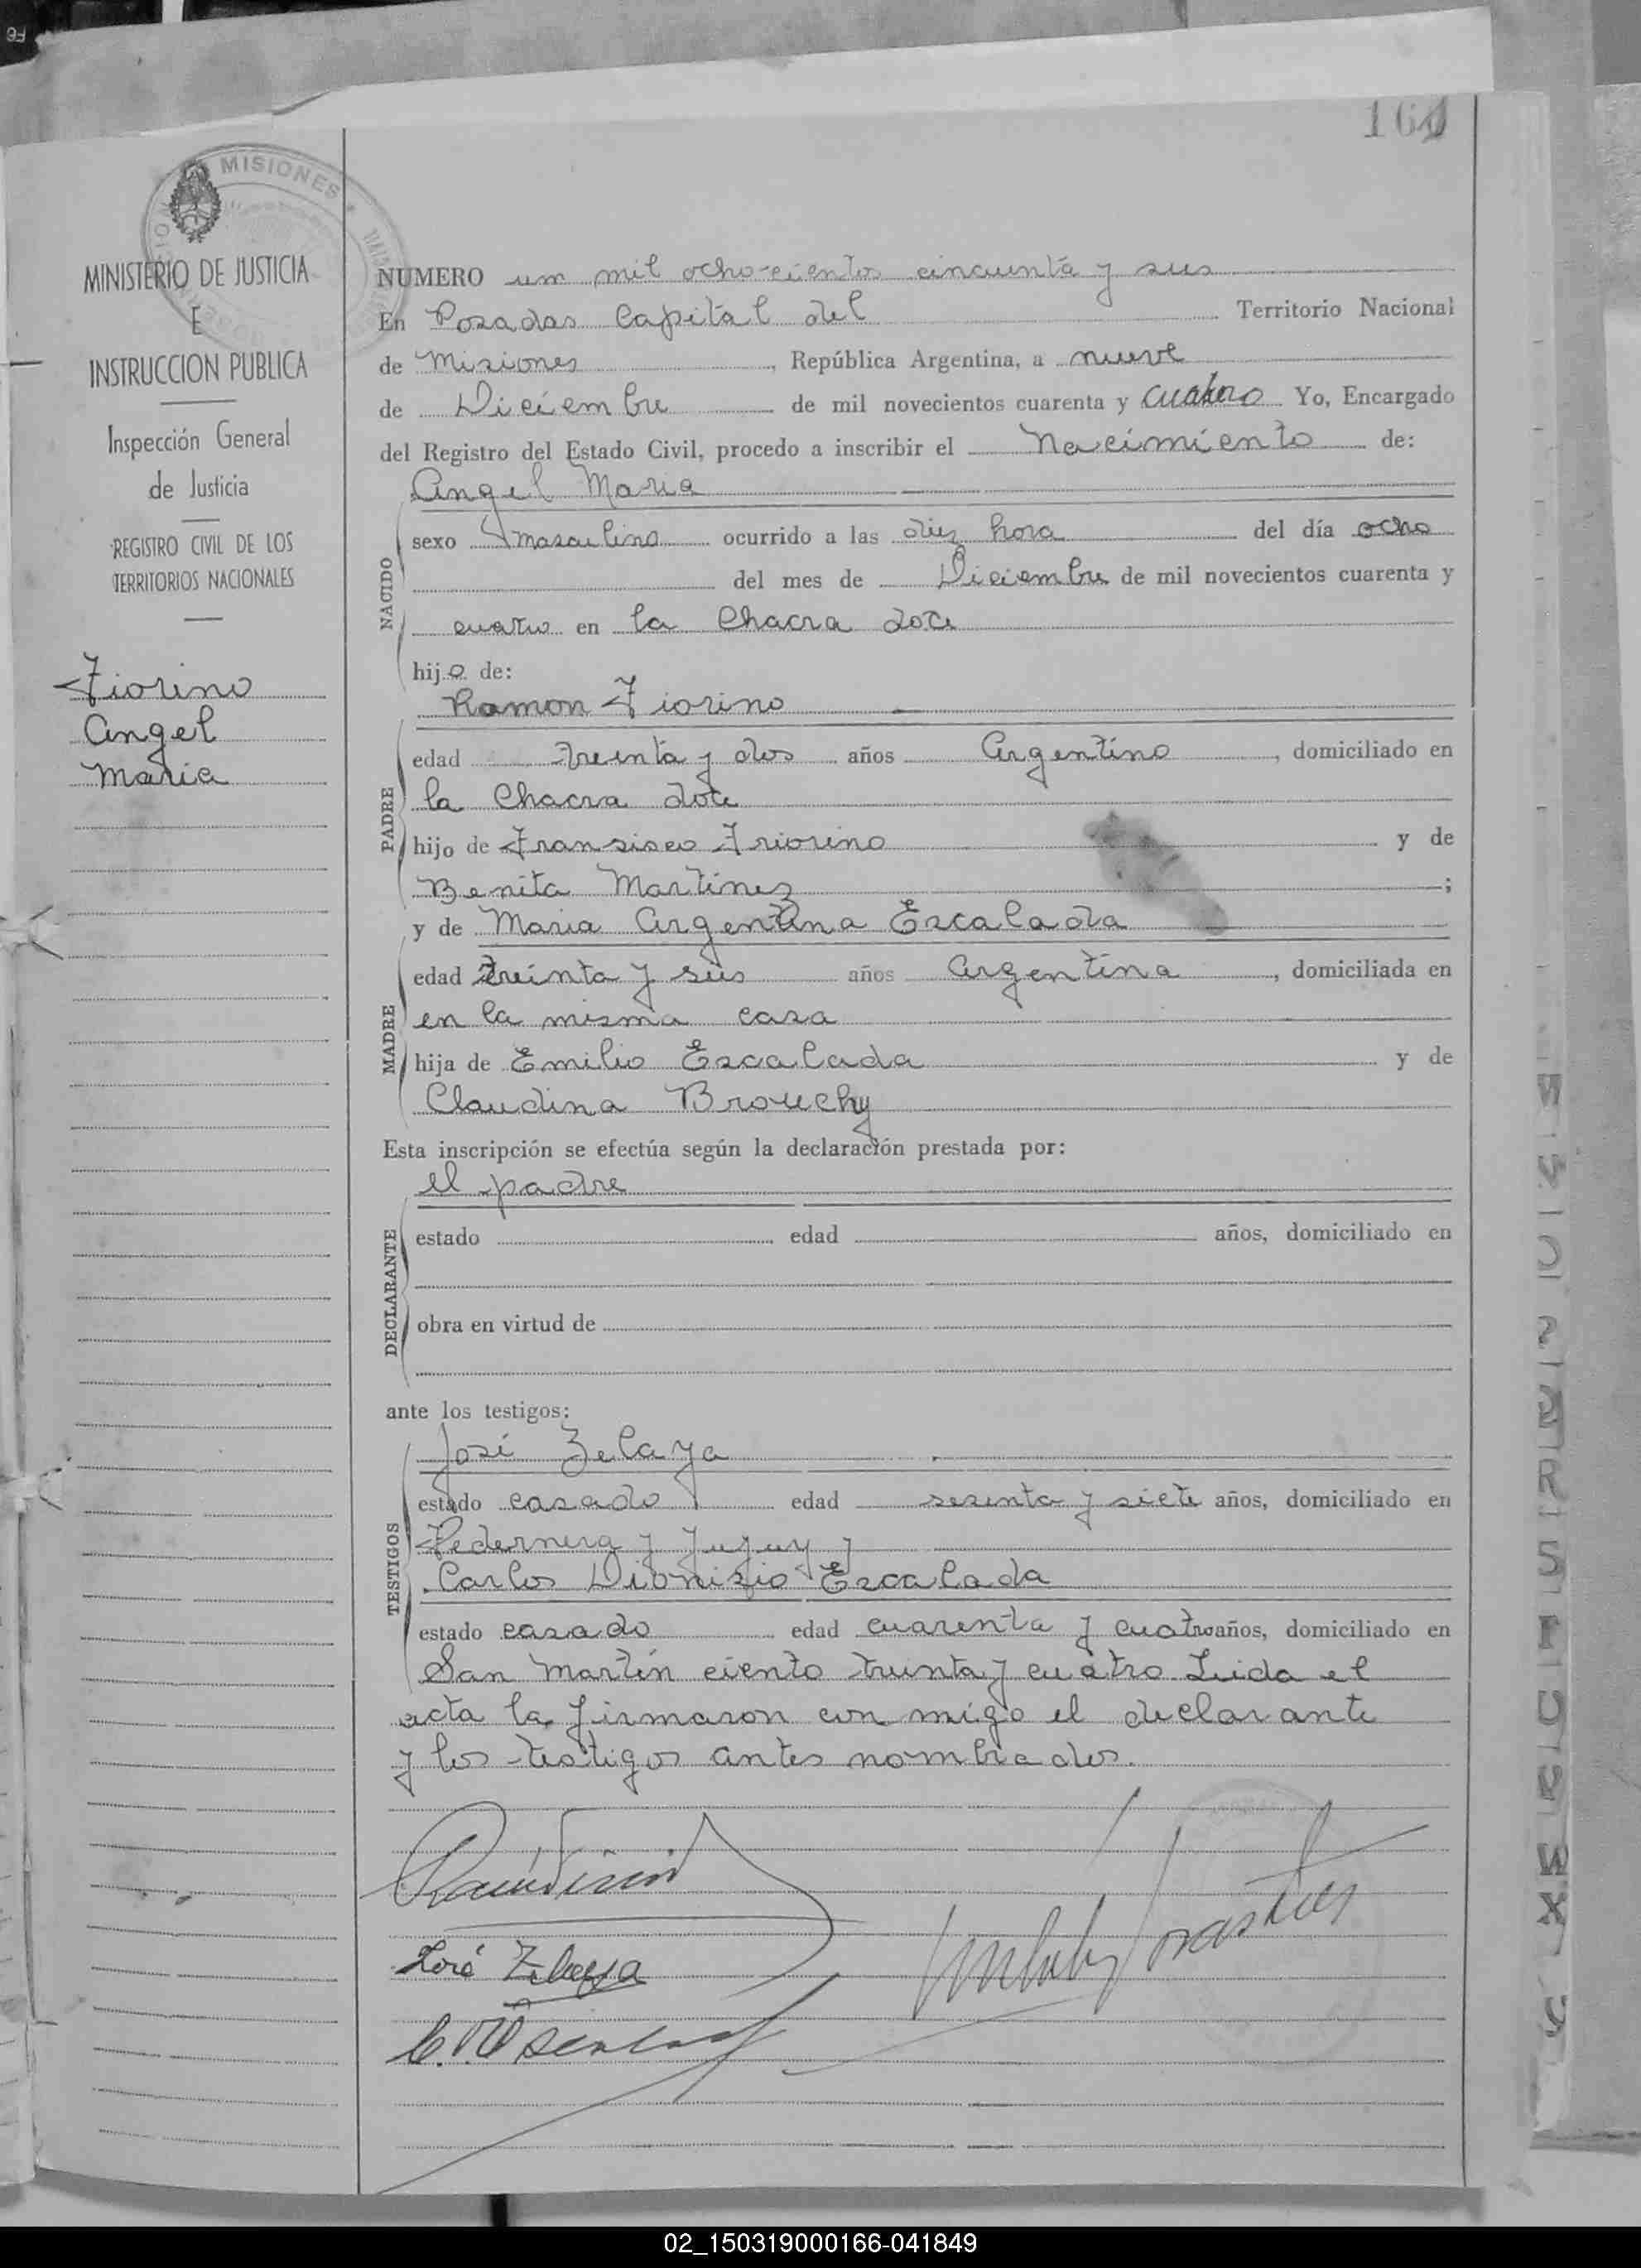 164
MISIONES
MINISTERIO DE JUSTICIA
E
INSTRUCCION PUBLICA
Inspección General
de Justicia
REGISTRO CIVIL DE LOS
TERRITORIOS NACIONALES
Fiorino
Angel
Maria
NUMERO un mil ochocientos cincuenta y seis
En Posadas Capital del Territorio Nacional
de Misiones, República Argentina, a nueve
de Diciembre de mil novecientos cuarenta y cuatro Yo, Encargado
del Registro del Estado Civil, procedo a inscribir el Nacimiento de:
Angel Maria
NACIDO
sexo masculino ocurrido a las diez hora del día ocho
del mes de Diciembre de mil novecientos cuarenta y
cuatro en la Chacra doce
hijo de:
Ramon Fiorino
PADRE
edad treinta y dos años Argentino, domiciliado en
la Chacra doce
hijo de Fransisco Friorino y de
Benita Martinez;
y de Maria Argentina Escalada
MADRE
edad treinta y seis años Argentina, domiciliada en
en la misma casa
hija de Emilio Escalada y de
Claudina Brouchy
Esta inscripción se efectúa según la declaración prestada por:
el padre
DECLARANTE
estado edad años, domiciliado en
obra en virtud de
ante los testigos:
José Zelaya
TESTIGOS
estado casado edad sesenta y siete años, domiciliado en
Pedernera y Jujuy y
Carlos Dionisio Escalada
estado casado edad cuarenta y cuatro años, domiciliado en
San Martín ciento treinta y cuatro Leida el
acta la firmaron con migo el declarante
y los testigos antes nombrados.
José Zelaya
02_150319000166-041849